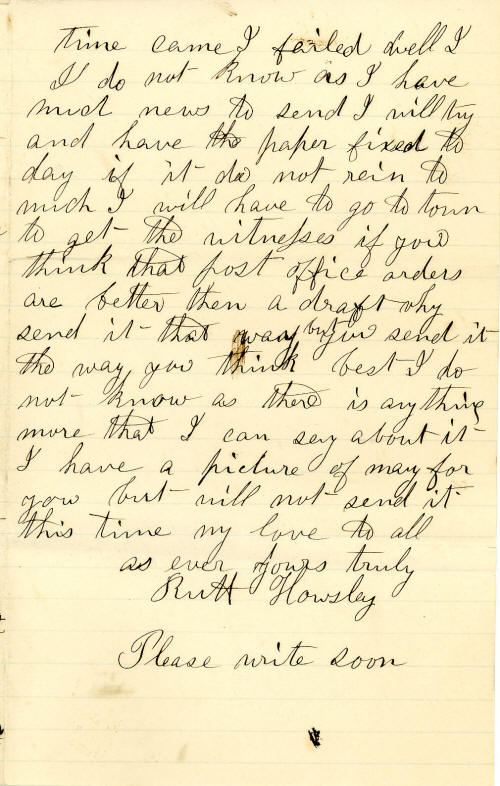 time came I failed well I
I do not know as I have
much news to send I will try
and have the paper fixed to
day if it do not rein to
much I will have to go to town
to get the witnesses if you
think that post office orders
are better then a draft why
send it that way but you send it
the way you think best I do
not know as there is anything
more that I can say about it
I have a picture of may for
you but will not send it
this time my love to all
as ever yours truly
Ruth Howsley
Please write soon